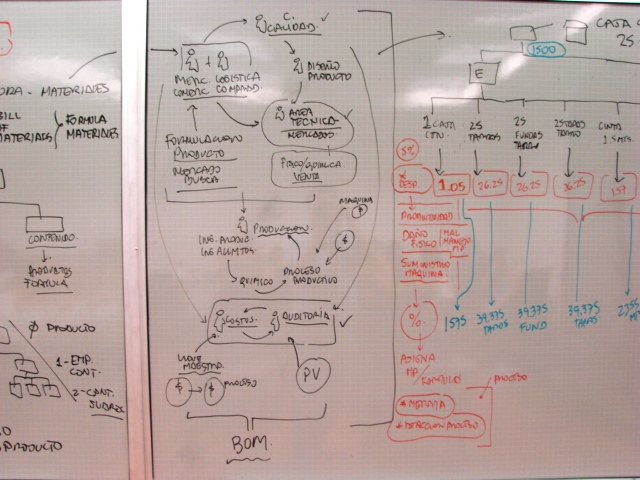 ORA - MATERIALES
BILL
OF
MATERIALES
FORMULA
MATERIALES
CONTENIDO
PRODUCTOS
FORMULA
PRODUCTO
1- EMP.
CONT.
2- CONT.
PRODUCTO
C.
CALIDAD. ✓
+
MERC LOGISTICA
COMERC COMANDO.
DISEÑO
PRODUCTO
AREA
TECNICA
MERCADOS
FORMULACION
PRODUCTO
MERCADO
BUSCA
FISICO/QUIMICA
VENTA
MAQUINA
$
PRODUCCION.
ING. PRODUC.
ING ALIMTOS.
$
QUIMICO
PROCESO
PRODUCTIVO
COSTOS.
AUDITORIA ✓
LLAVE
MAESTRA.
$ $ PROCESO
PV
BOM.
CAJA
25
1500
E
1 CAJA
CTN
25
TARROS
25
FUNDAS
TARRO
25 TODOS
TARRO
CINTA
1.5 MTS.
5%
DESP.
1.05
26.25
26.25
26.25
1.57
PRODUCTIVIDAD
DAÑO
FISICO
MAL
MANEJO
MP
SUMINISTRO
MAQUINA.
%
1575
39,375
TARROS
39,375
FUND
39,375
TARROS
ASIGNA
MP
/FORMULA
PROCESO
* MERMA
* DETECCION PROCESO